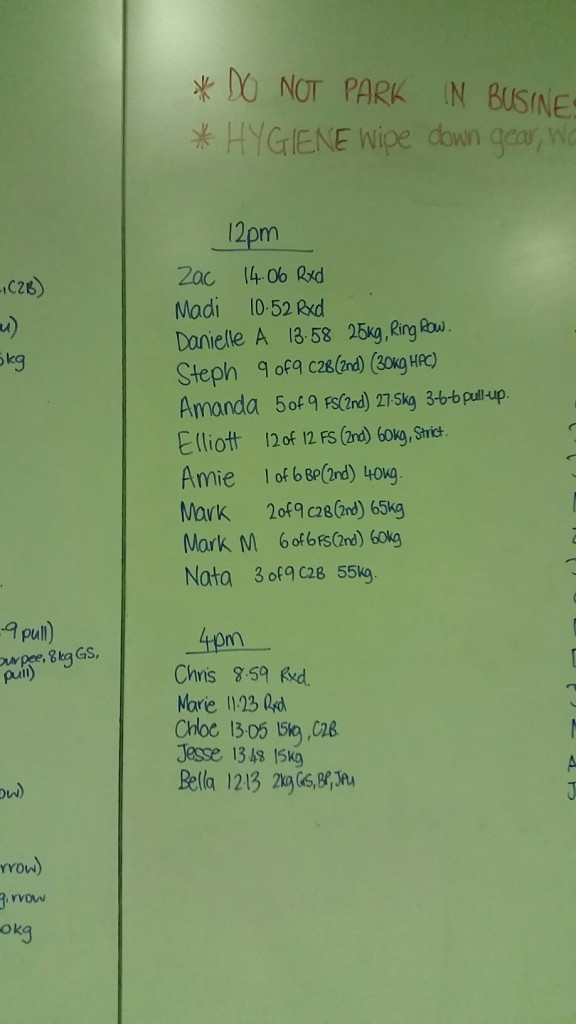 * DO NOT PARK IN BUSINES
* HYGIENE wipe down gear, wa
12pm
Zac 14.06 Rxd
Madi 10.52 Rxd
Danielle A 13.58 25kg, Ring Row.
Steph 9 of 9 C2B(2nd) (30kg HPC)
Amanda 5 of 9 FS(2nd) 27.5kg 3-6-6 pull-up.
Elliott 12 of 12 FS (2nd) 60kg, Strict.
Amie 1 of 6 BP(2nd) 40kg.
Mark 2 of 9 C2B(2nd) 65kg
Mark M 6 of 6 FS(2nd) 60kg
Nata 3 of 9 C2B 55kg.
4pm
Chris 8.59 Rxd.
Marie 11.23 Rxd
Chloe 13.05 15kg, C2B
Jesse 13.48 15kg
Bella 12.13 2kg GS, BP, JPu
, C2B)
u)
5kg
-9 pull)
burpee, 8kg GS,
pull)
ow)
rrow)
g, rrow
0kg